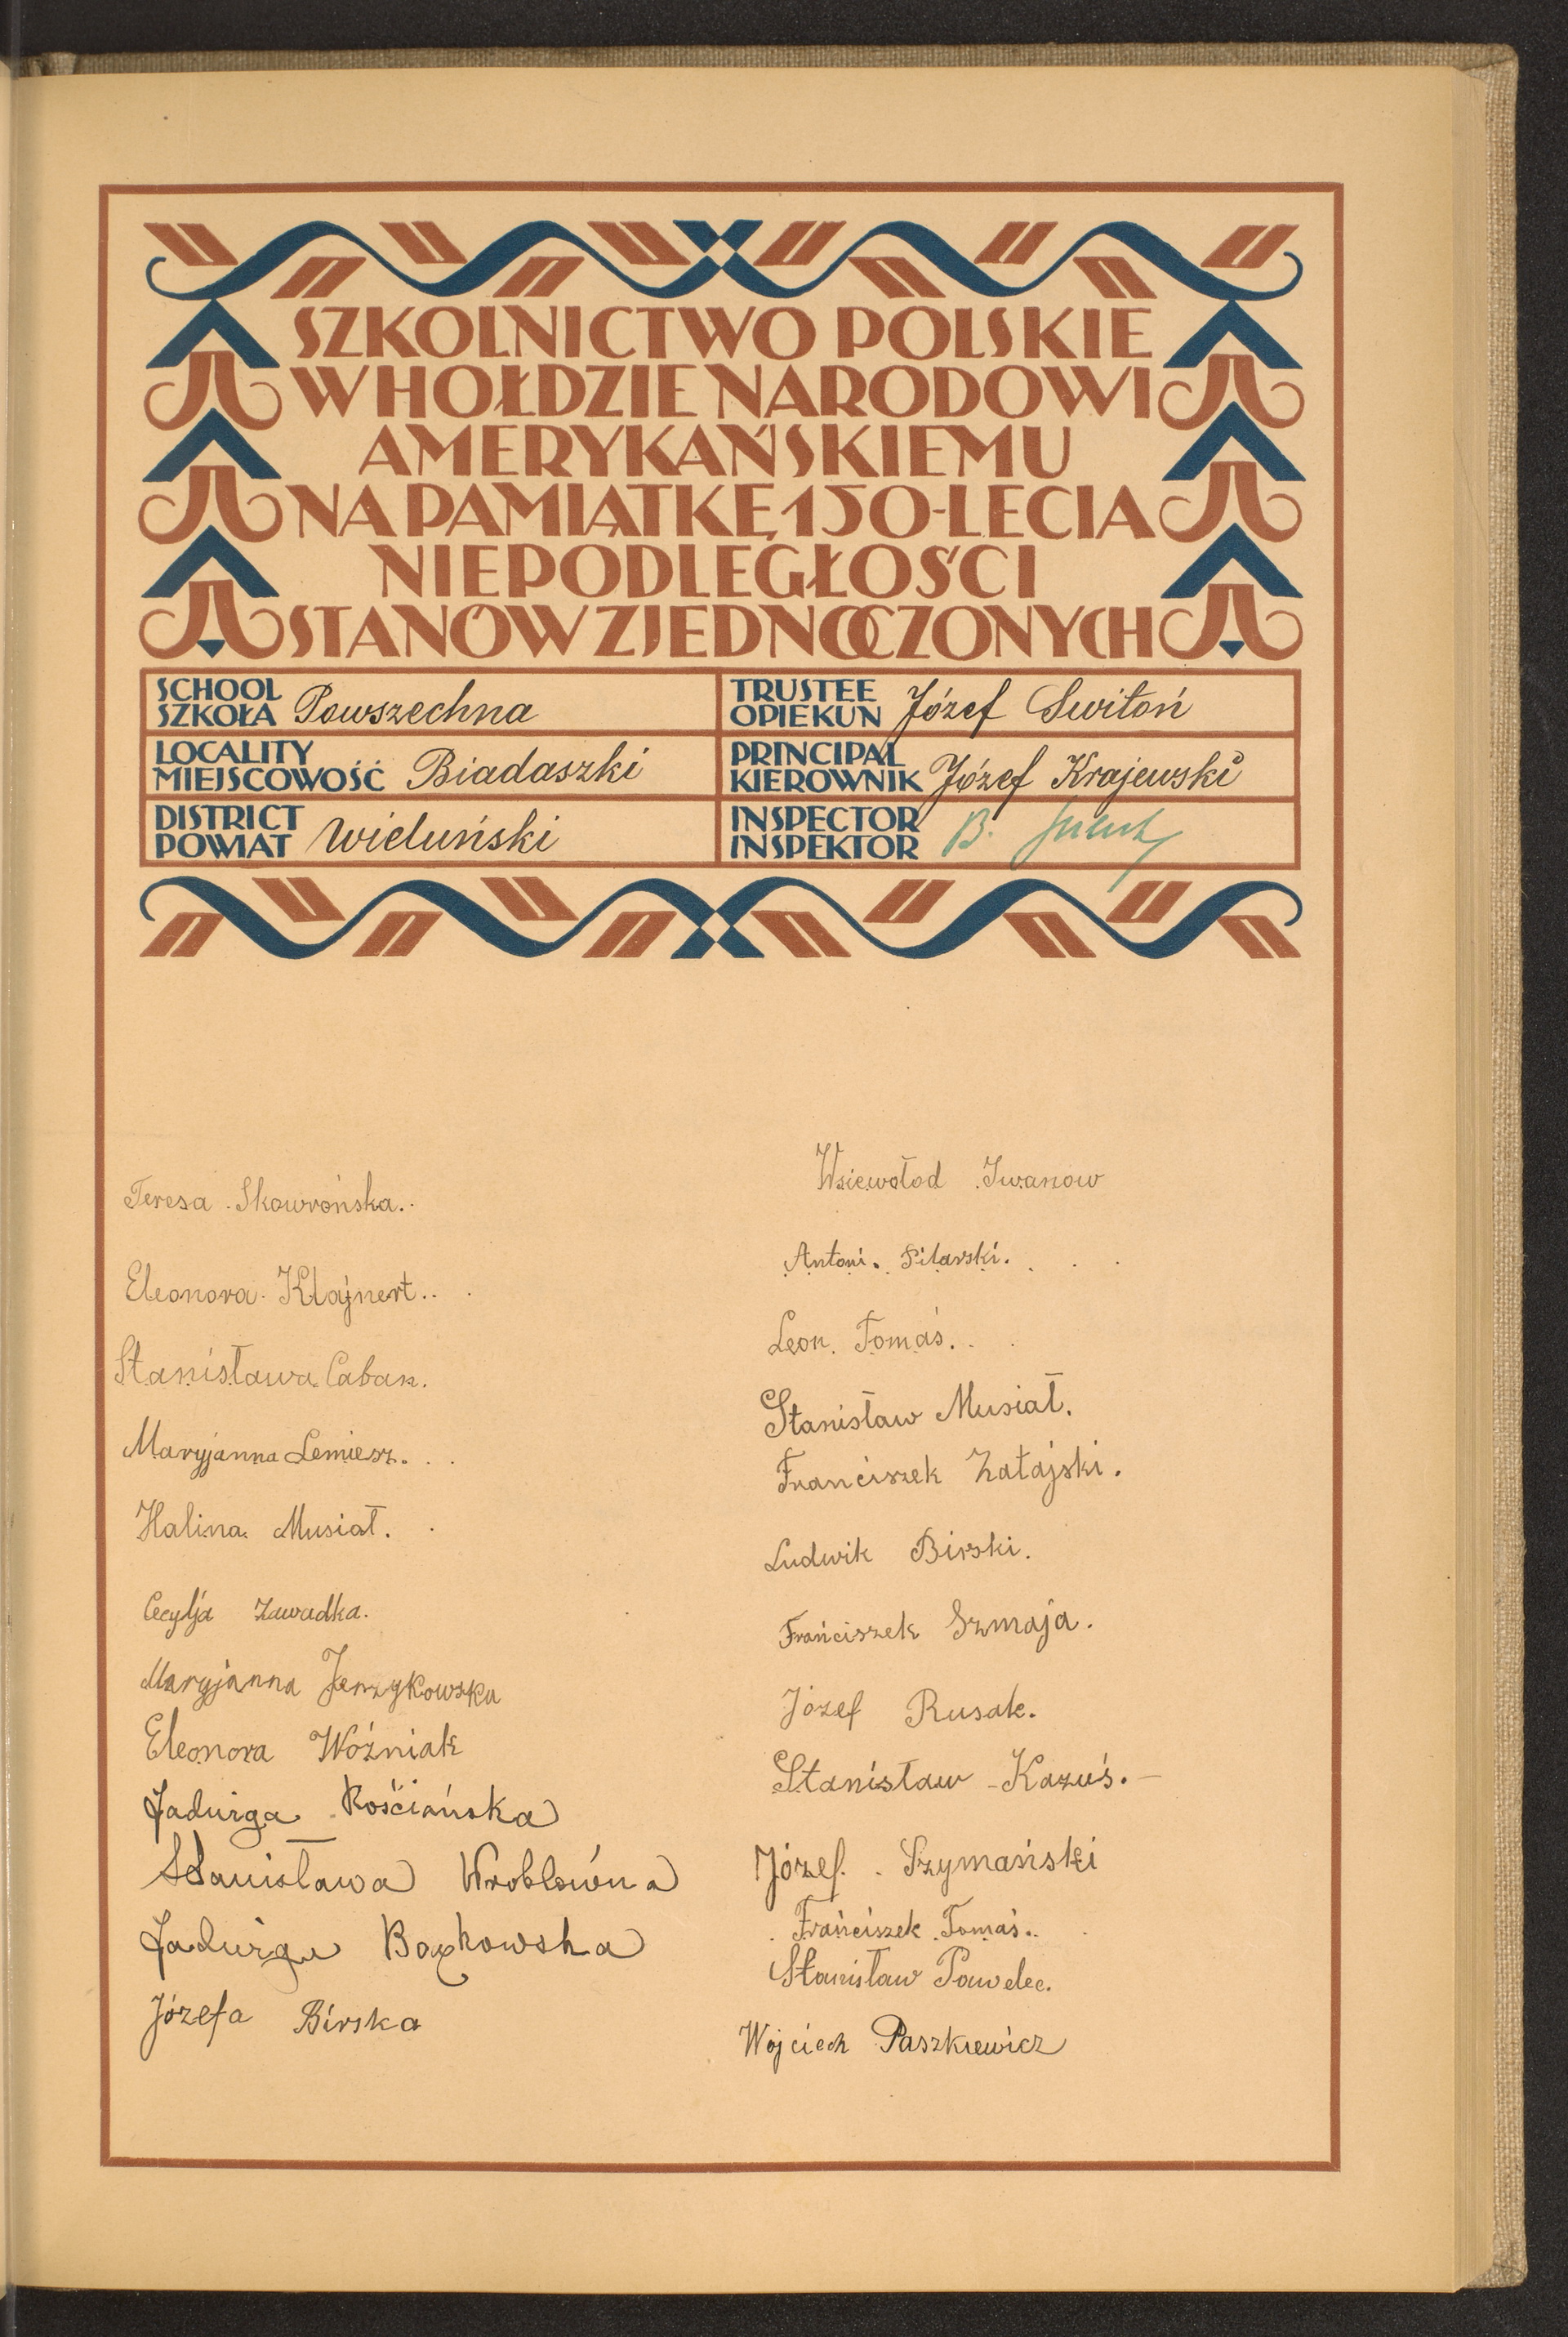 SZKOLNICTWO POLSKIE
W HOŁDZIE NARODOWI
AMERYKAŃSKIEMU
NA PAMIĄTKĘ 150-LECIA
NIEPODLEGŁOŚCI
STANÓW ZJEDNOCZONYCH
SCHOOL
SZKOŁA Powszechna
LOCALITY
MIEJSCOWOŚĆ Biadaszki
DISTRICT
POWIAT Wieluński
TRUSTEE
OPIEKUN Józef Switoń
PRINCIPAL
KIEROWNIK Józef Krajewski
INSPECTOR
INSPEKTOR B.
Teresa Skowrońska.
Eleonora Klajnert.
Stanisława Caban.
Maryjanna Lemiesz.
Halina Musiał.
Cecylja Zawadka.
Maryjanna Jerzykowska
Eleonora Woźniak
Jadwiga Kościańska
Stanisława Wroblewna
Jadwiga
Józefa Birska
Wsiewołod Iwanow
Antoni Pilarski.
Leon Tomaś.
Stanisław Musiał.
Franciszek Zatajski.
Ludwik Birski.
Frańciszek Szmaja.
Józef Rusak.
Stanisław Kazuś.
Józef Szymański
Frańciszek Tomaś.
Stanisław Pawelec.
Wojciech Paszkiewicz